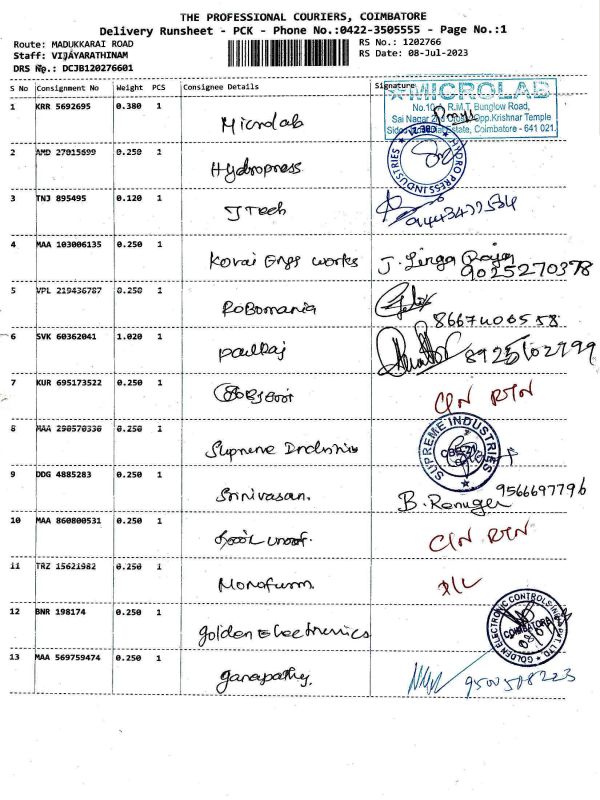 THE PROFESSIONAL COURIERS, COIMBATORE
Delivery Runsheet - PCK - Phone No.:0422-3505555 - Page No.:1
Route: MADUKKARAI ROAD RS No.: 1202766
Staff: VIJAYARATHINAM RS Date: 08-Jul-2023
DRS No.: DCJB120276601
S No Consignment No Weight PCS Consignee Details Signature
1 KRR 5692695 0.380 1 Microlab
MICROLAB
R.M.T. Bunglow Road,
Sai Nagar Opp.Krishnar Temple
Estate, Coimbatore - 641 021.
2 AMD 27015699 0.250 1 Hydropress HYDRO PRESS INDUSTRIES
3 TNJ 895495 0.120 1 J Tech
4 MAA 103006135 0.250 1 Kovai Engg works J. Linga Raja
9025270378
5 VPL 219436787 0.250 1 Robomania
8667400558
6 SVK 60362041 1.020 1 paulRaj
7 KUR 695173522 0.250 1
8 MAA 290570330 0.250 1 Supreme Industries SUPREME INDUSTRIES
9 DDG 4885283 0.250 1 Srinivasan. B. Renuger 9566697796
10 MAA 860800531 0.250 1
11 TRZ 15621982 0.250 1
12 BNR 198174 0.250 1 golden Electronics GOLDEN ELECTRONIC CONTROLS INDIA PVT. LTD.
COIMBATORE
13 MAA 569759474 0.250 1 ganapathy. 9500508223